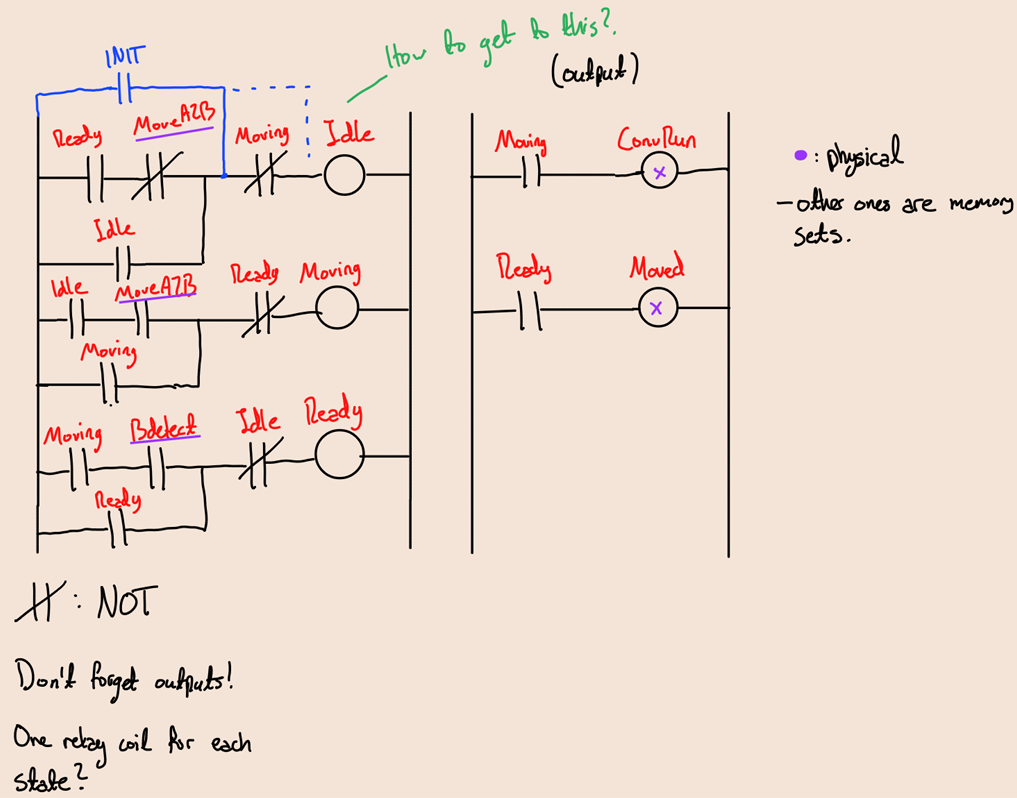 How to get to this?
(output)
INIT
Ready MoveA2B Moving Idle
Idle
Idle MoveA2B Ready Moving
Moving
Moving Bdetect Idle Ready
Ready
Moving ConvRun
x
Ready Moved
x
: physical
- other ones are memory
sets.
: NOT
Don't forget outputs!
One relay coil for each
state?